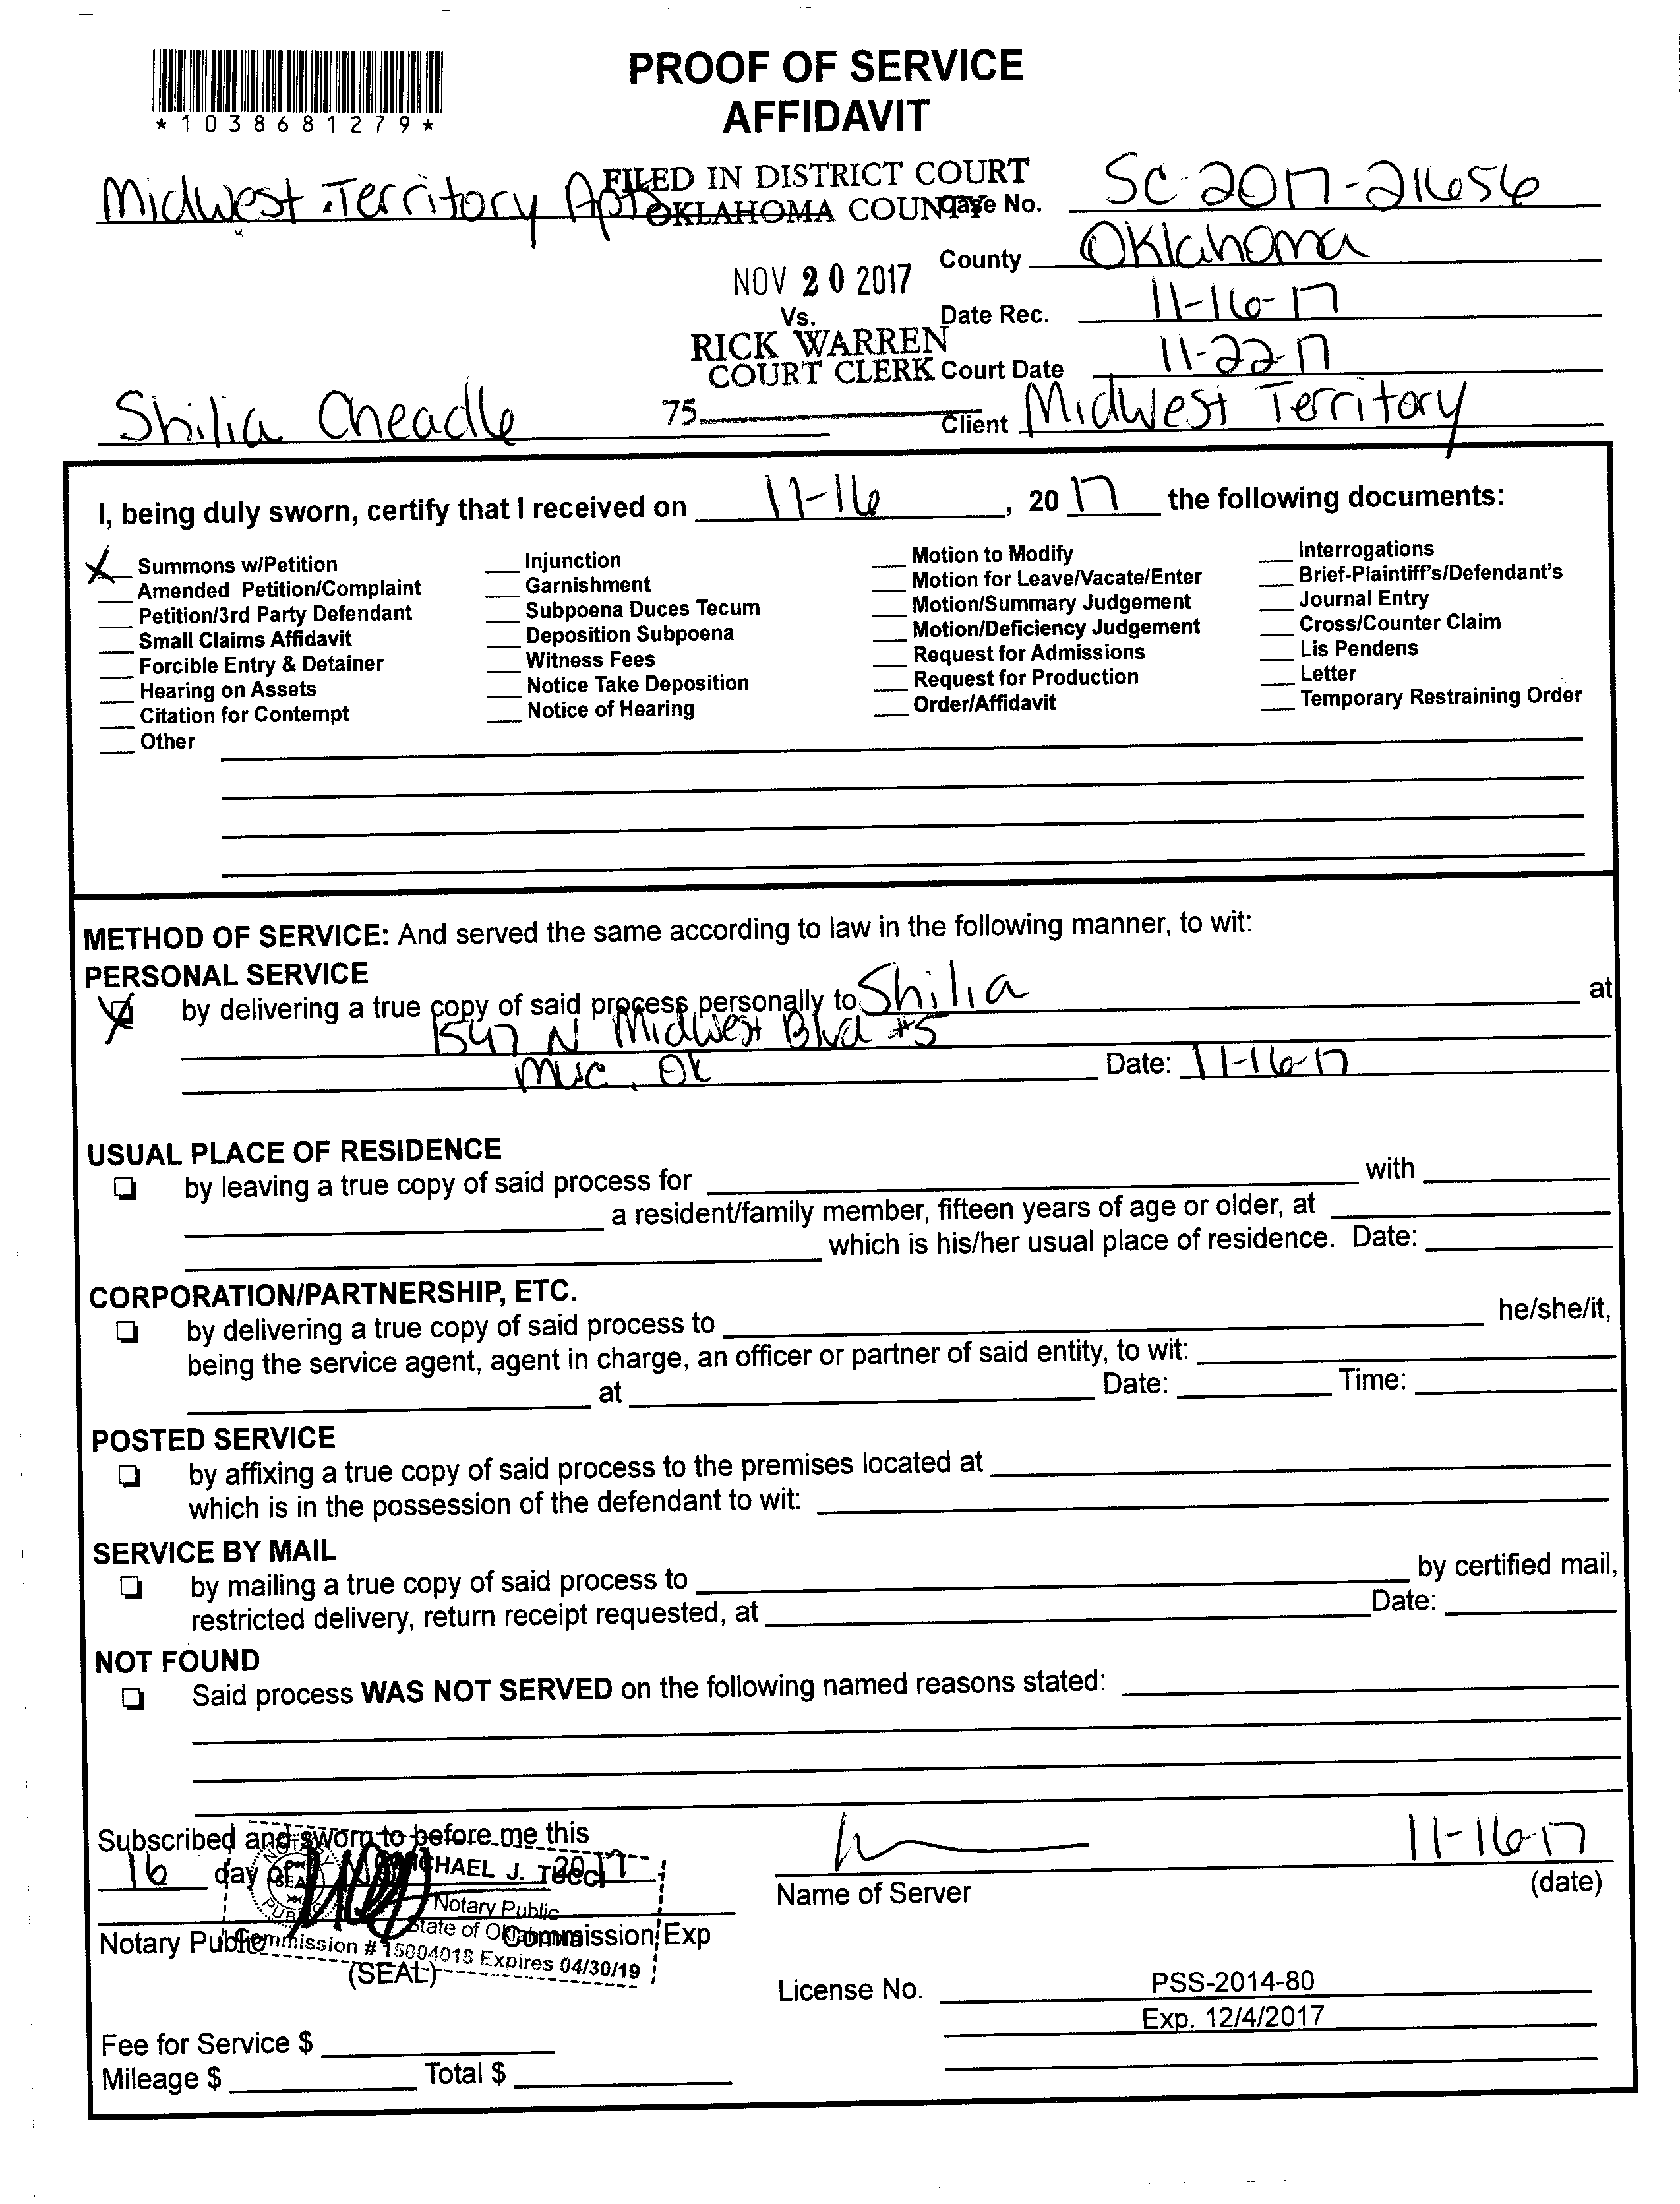 *1038681279*
PROOF OF SERVICE
AFFIDAVIT
Midwest Territory Apts
FILED IN DISTRICT COURT
OKLAHOMA COUNTY
Case No. SC-2017-21656
County Oklahoma
NOV 20 2017
Vs.
Date Rec. 11-16-17
RICK WARREN
COURT CLERK
Court Date 11-22-17
Shilia Cheadle
75
Client Midwest Territory
I, being duly sworn, certify that I received on 11-16, 2017 the following documents:
X Summons w/Petition
Amended Petition/Complaint
Petition/3rd Party Defendant
Small Claims Affidavit
Forcible Entry & Detainer
Hearing on Assets
Citation for Contempt
Other
Injunction
Garnishment
Subpoena Duces Tecum
Deposition Subpoena
Witness Fees
Notice Take Deposition
Notice of Hearing
Motion to Modify
Motion for Leave/Vacate/Enter
Motion/Summary Judgement
Motion/Deficiency Judgement
Request for Admissions
Request for Production
Order/Affidavit
Interrogations
Brief-Plaintiff's/Defendant's
Journal Entry
Cross/Counter Claim
Lis Pendens
Letter
Temporary Restraining Order
METHOD OF SERVICE: And served the same according to law in the following manner, to wit:
PERSONAL SERVICE
X by delivering a true copy of said process personally to Shilia at
1547 N Midwest Blvd #5
MWC, OK Date: 11-16-17
USUAL PLACE OF RESIDENCE
by leaving a true copy of said process for with
a resident/family member, fifteen years of age or older, at
which is his/her usual place of residence. Date:
CORPORATION/PARTNERSHIP, ETC.
by delivering a true copy of said process to he/she/it,
being the service agent, agent in charge, an officer or partner of said entity, to wit:
at Date: Time:
POSTED SERVICE
by affixing a true copy of said process to the premises located at
which is in the possession of the defendant to wit:
SERVICE BY MAIL
by mailing a true copy of said process to by certified mail,
restricted delivery, return receipt requested, at Date:
NOT FOUND
Said process WAS NOT SERVED on the following named reasons stated:
Subscribed and sworn to before me this
16 day of 2017
NOTARY
SEAL
PUBLIC
MICHAEL J. Tucci
Notary Public
State of Oklahoma
Commission # 15004018 Expires 04/30/19
Notary Public Commission Exp
(SEAL)
Fee for Service $
Mileage $ Total $
11-16-17
Name of Server (date)
License No. PSS-2014-80
Exp. 12/4/2017